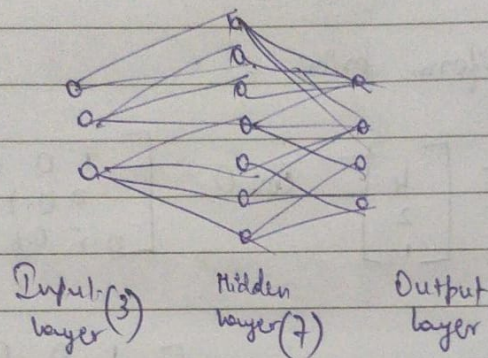 Input (3)
layer
Hidden
layer (7)
Output
layer